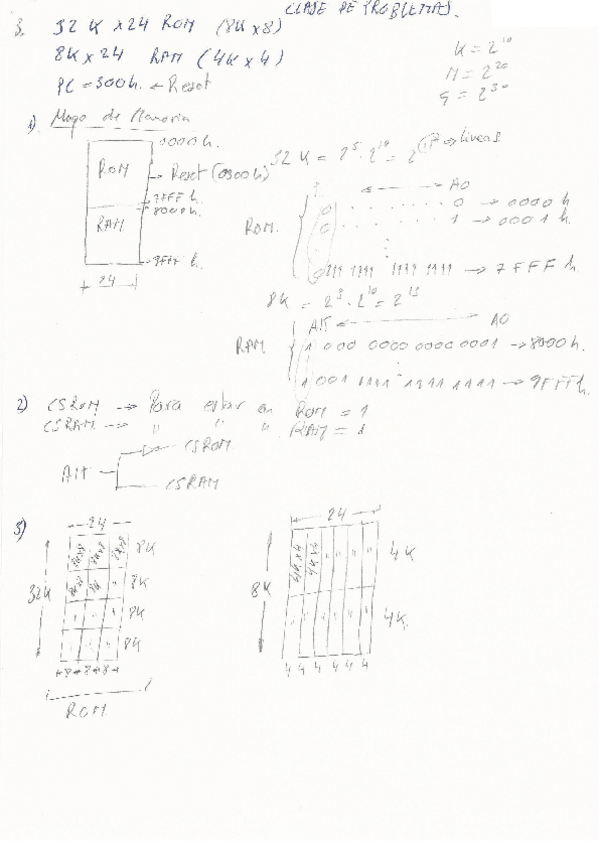 CLASE DE PROBLEMAS.
3. 32 K x 24 ROM (8K x 8)
8K x 24 RAM (4K x 4)
PC = 300h. ← Reset
K = 2^10
M = 2^20
G = 2^30
1) Mapa de Memoria
0000h.
ROM
Reset (0300h)
7FFFh.
8000h.
RAM
9FFFh.
24
32K = 2^5 · 2^10 = 2^15 ⇒ lineas
A0
ROM
0 . . . . . . . . 0 → 0000h
0 . . . . . . . . 1 → 0001h.
0111 1111 1111 1111 → 7FFFh
8K = 2^3 · 2^10 = 2^13
A15 A0
RAM
1 000 0000 0000 0001 → 8000h.
1 001 1111 1111 1111 → 9FFFh.
2) CSROM → Para estar en ROM = 1
CSRAM → " " " RAM = 1
A15
CSROM
CSRAM
3)
24
8Kx8 8Kx8 8Kx8 8K
32K
8Kx8 8K " 8K
" " " 8K
" " " 8K
8 8 8
ROM
24
4Kx4 4Kx4 " " " " 4K
8K
" " " " " " 4K.
4 4 4 4 4 4